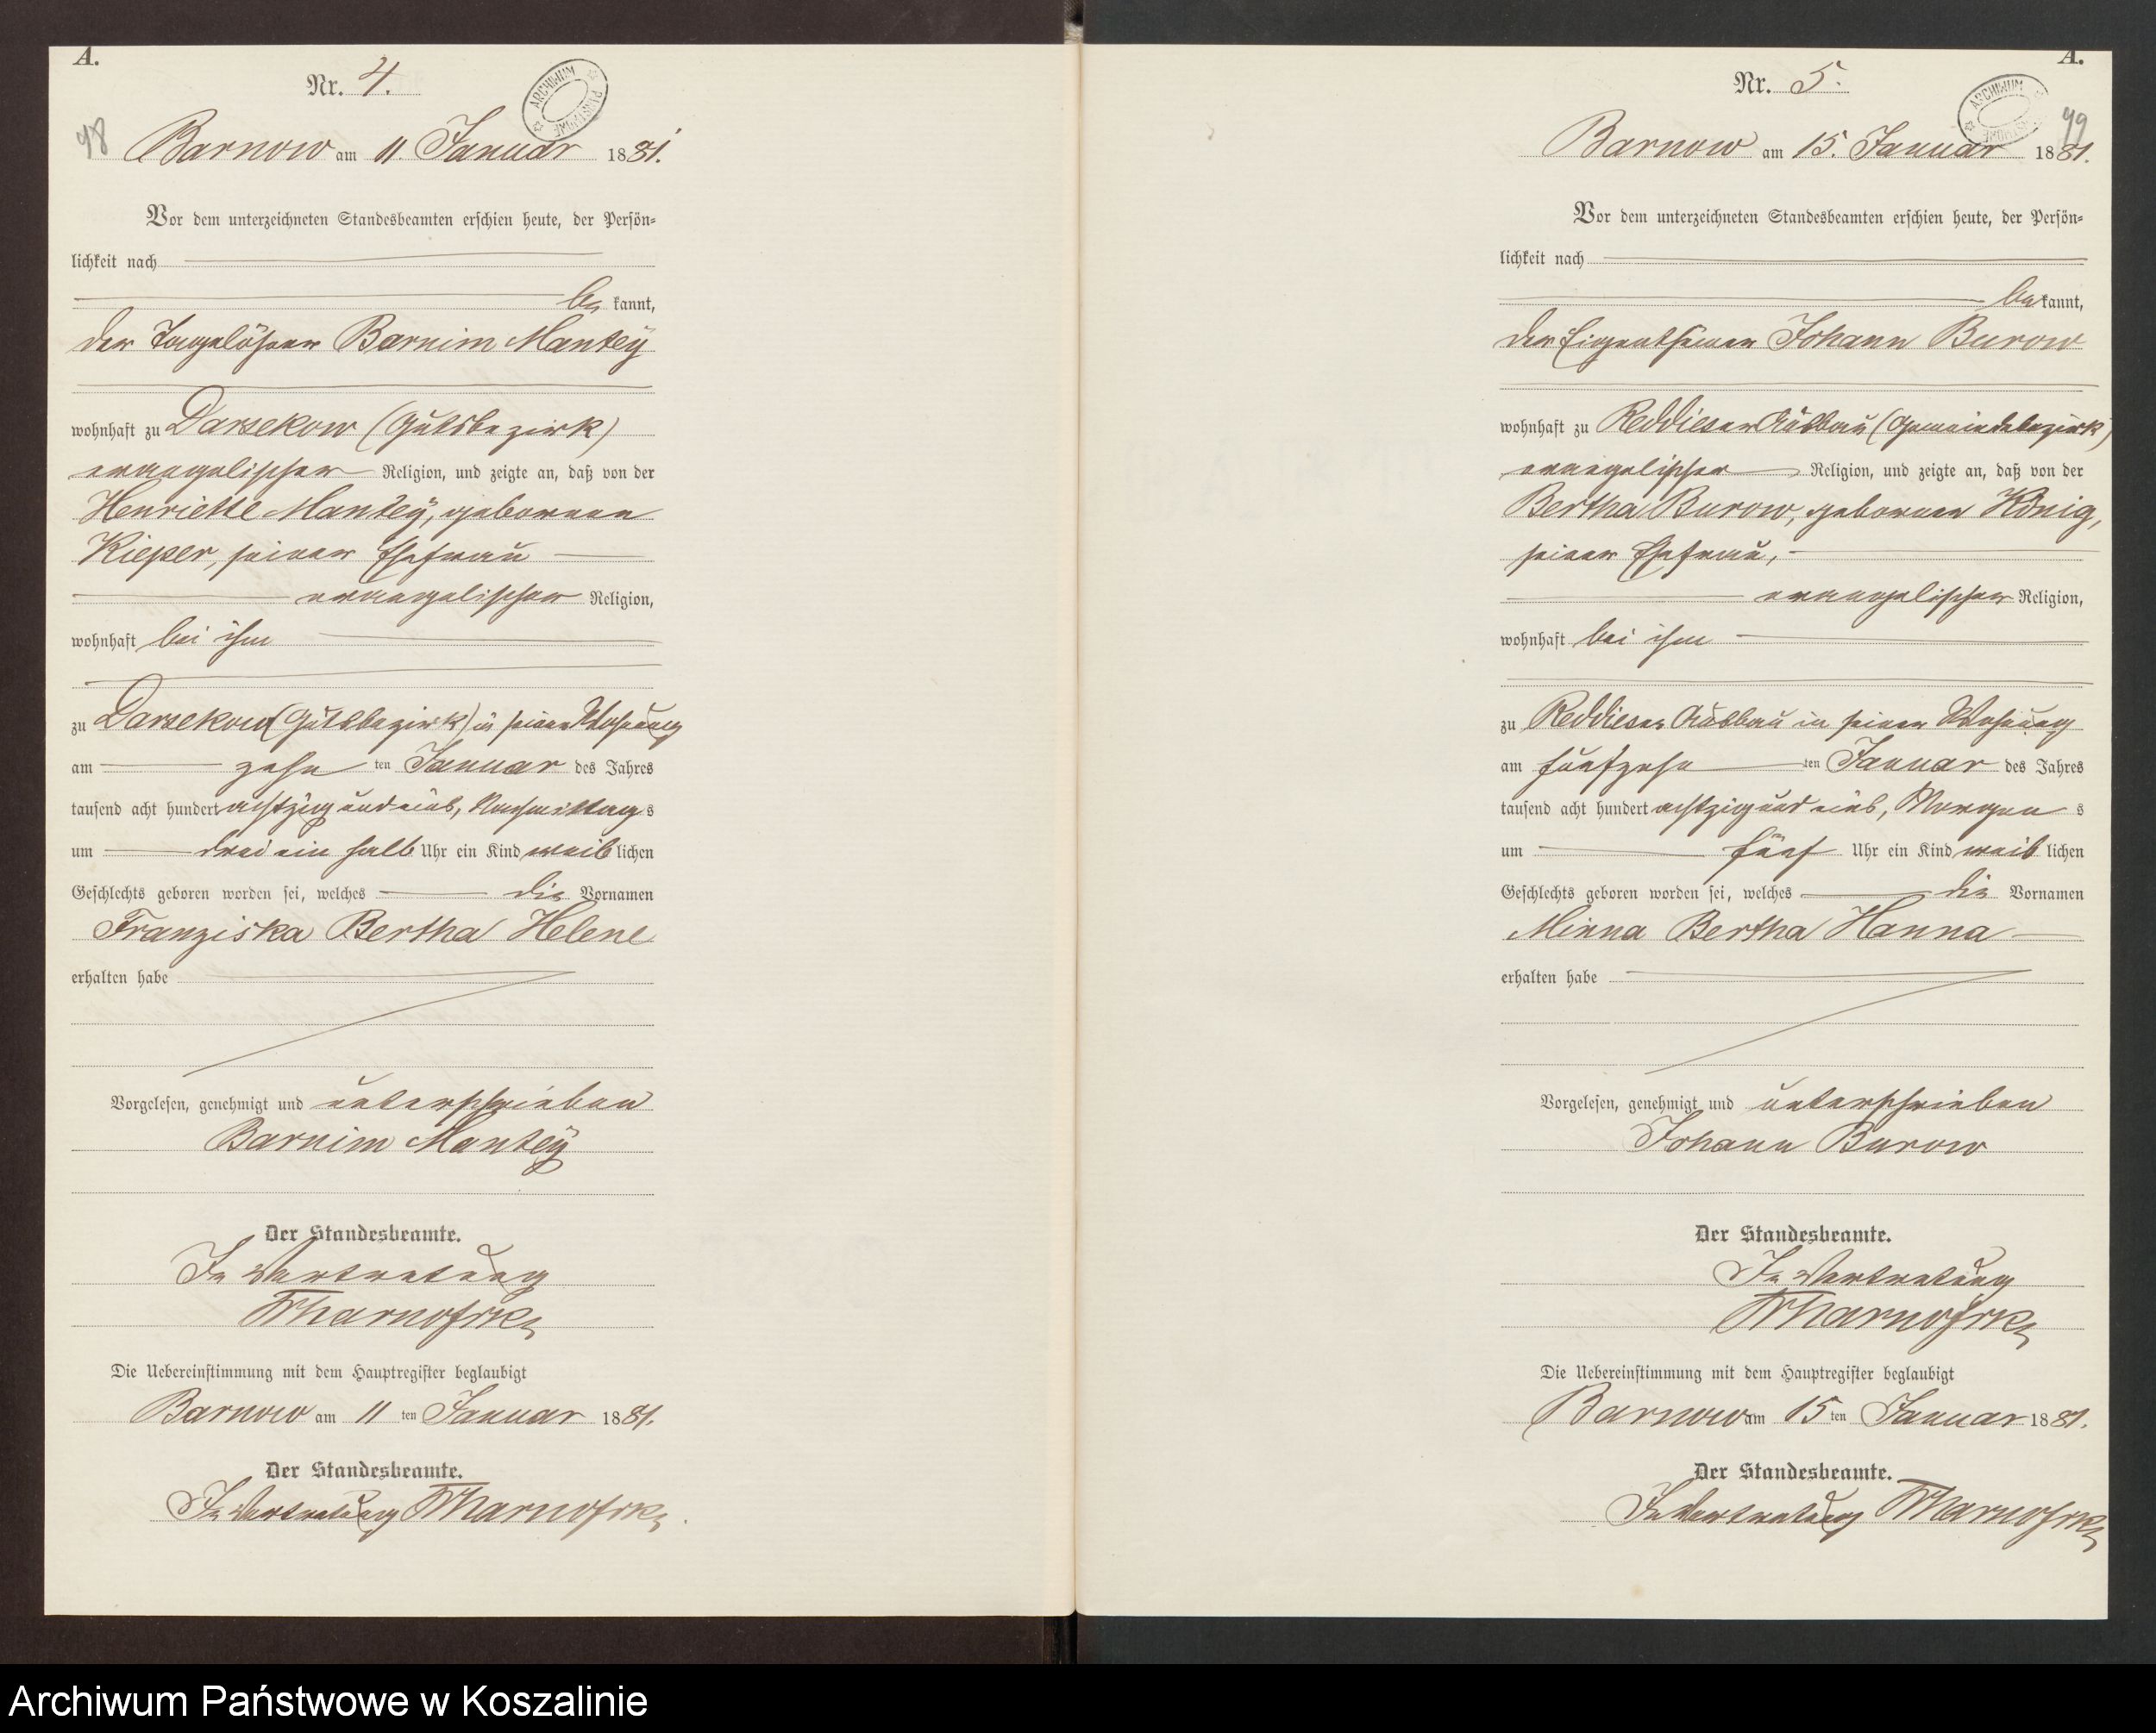 A.
Nr. 4.
ARCHIWUM PAŃSTWOWE
48
Barnow am 11. Januar 1881.
Vor dem unterzeichneten Standesbeamten erschien heute, der Persön-
lichkeit nach
be kannt,
der Tagelöhner Barnim Manteÿ
wohnhaft zu Darsekow (Gutsbezirk)
evangelischer Religion, und zeigte an, daß von der
Henriette Manteÿ, geborenen
Kieper, seiner Ehefrau
evangelischer Religion,
wohnhaft bei ihm
zu Darsekow (Gutsbezirk) in seiner Wohnung
am zehn ten Januar des Jahres
tausend acht hundert achtzig und eins, Nachmittag s
um drei ein halb Uhr ein Kind weib lichen
Geschlechts geboren worden sei, welches die Vornamen
Franziska Bertha Helene
erhalten habe
Vorgelesen, genehmigt und unterschrieben
Barnim Manteÿ
Der Standesbeamte.
In Vertretung
Die Uebereinstimmung mit dem Hauptregister beglaubigt
Barnow am 11 ten Januar 1881.
Der Standesbeamte.
In Vertretung
A.
Nr. 5.
ARCHIWUM
49
Barnow am 15. Januar 1881.
Vor dem unterzeichneten Standesbeamten erschien heute, der Persön-
lichkeit nach
be kannt,
der Eigenthümer Johann Burow
wohnhaft zu Reddieser Ausbau (Gemeindebezirk)
evangelischer Religion, und zeigte an, daß von der
Bertha Burow, geborenen König,
seiner Ehefrau,
evangelischer Religion,
wohnhaft bei ihm
zu Reddieser Ausbau in seiner Wohnung
am fünfzehn ten Januar des Jahres
tausend acht hundert achtzig und eins, Morgen s
um fünf Uhr ein Kind weib lichen
Geschlechts geboren worden sei, welches die Vornamen
Minna Bertha Hanna
erhalten habe
Vorgelesen, genehmigt und unterschrieben
Johann Burow
Der Standesbeamte.
In Vertretung
Die Uebereinstimmung mit dem Hauptregister beglaubigt
Barnow am 15 ten Januar 1881.
Der Standesbeamte.
In Vertretung
Archiwum Państwowe w Koszalinie